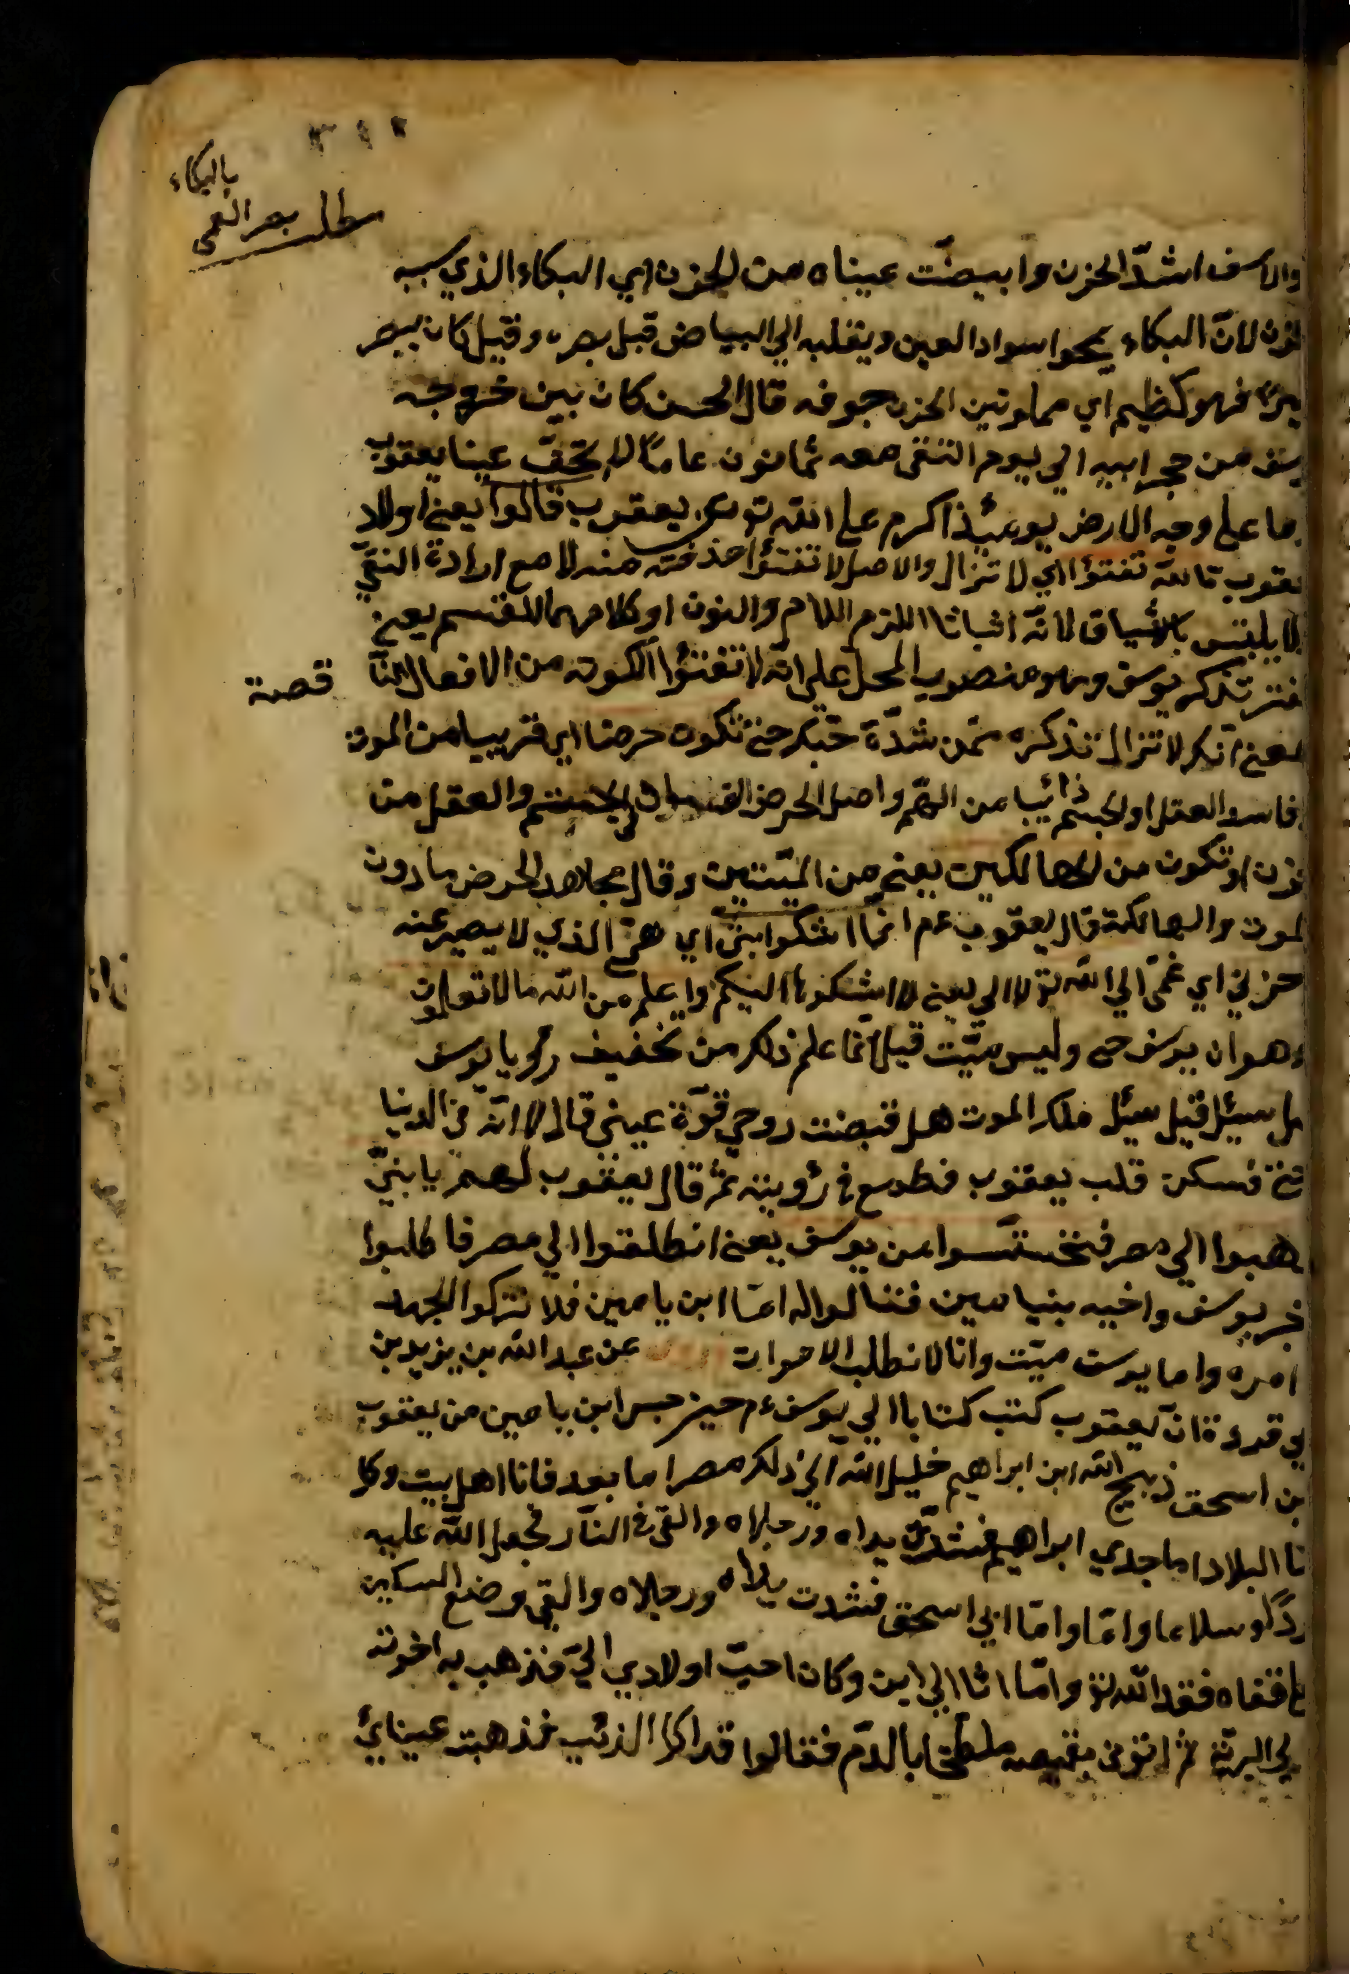 بالبكاء
مطلب بصر العمى
والاسف اشدّ الحزن وابيضّت عيناه من الحزن اي البكاء الذي سببه
لانّ البكاء يمحوا سواد العين ويقلبه الي البياض قبل بصره وقيل كان يبصر
فهو كظيم اي مملو من الحزن جوفه قال الحسن كان بين خروجه
يوسف من حجر ابيه الي يوم التقى معه ثمانون عاماً لا تجفّ عينا يعقوب
وما على وجه الارض يومئذ اكرم على الله تع من يعقوب قالوا يعني اولاد
يعقوب تالله تفتؤا اي لا تزال والاصل لا تفتؤا حذفت منه لا مع ارادة النفي
لا يلتبس بالاثبات لانّه اثباتا اللزم اللام والنون او كلامهما للقسم يعني
تذكر يوسف وهو منصوب المحل على انّه لا تفتؤا لكونه من الافعال النا قصة
يعني انّك لا تزال تذكره من شدّة حبّك حتى تكون حرضا اي قريبا من الموت
فاسد العقل او الجسم ذائبا من الهمّ واصل الحرض الفساد في الجسم والعقل من
الحزن او تكون من الهالكين يعني من الميّتين وقال مجاهد الحرض ما دون
الموت والهالكة قال يعقوب عم انّما اشكوا بثّي اي همّي الذي لا يصبر عنه
وحزني اي غمّي الي الله تع لا الي يعني لا اشكوها اليكم واعلم من الله ما لا تعلمون
وهو ان يوسف حي وليس ميّت قيل انّما علم ذلك من تخفيف رؤيا يوسف
سئل قيل سئل ملك الموت هل قبضت روحي قرّة عيني قال لا انّه في الدنيا
فسكن قلب يعقوب فطمع في رؤيته ثمّ قال يعقوب لهم يا بنيّ
اذهبوا الي مصر فتحسّسوا من يوسف يعني انطلقوا الي مصر فاطلبوا
خبر يوسف واخيه بنيامين فقالوا له امّا ابن يامين فلا نترك الجهد
امره واما يوسف ميّت وانا لا نطلب الاموات عن عبد الله بن يزيد بن
ابي قروة انّ يعقوب كتب كتابا الي يوسف عم حين حبس ابن يامين من يعقوب
بن اسحق ذبيح الله ابن ابراهيم خليل الله الي ذلك مصر اما بعد فانا اهل بيت وكل
نا البلاد اما جدي ابراهيم فشدّت يداه ورجلاه والقي في النار فجعل الله عليه
برداً وسلاما وامّا ابي اسحق فشدت يداه ورجلاه والقي وضع السكين
على قفاه ففداه الله تع وامّا انا الي ابن وكان احبّ اولادي اليّ فذهب به اخوته
الي البريّة ثمّ اتوني بقميصه ملطّخا بالدّم فقالوا قد اكل الذئب فذهبت عيناي